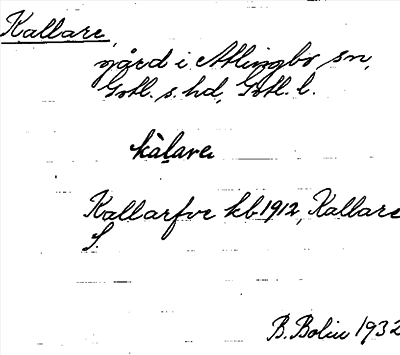 Kallare,
gård i Atlingbo sn,
Gotl. s. hd, Gotl. l.
kàlare
Kallarfve kb 1912, Kallare
S.
B. Bolin 1932